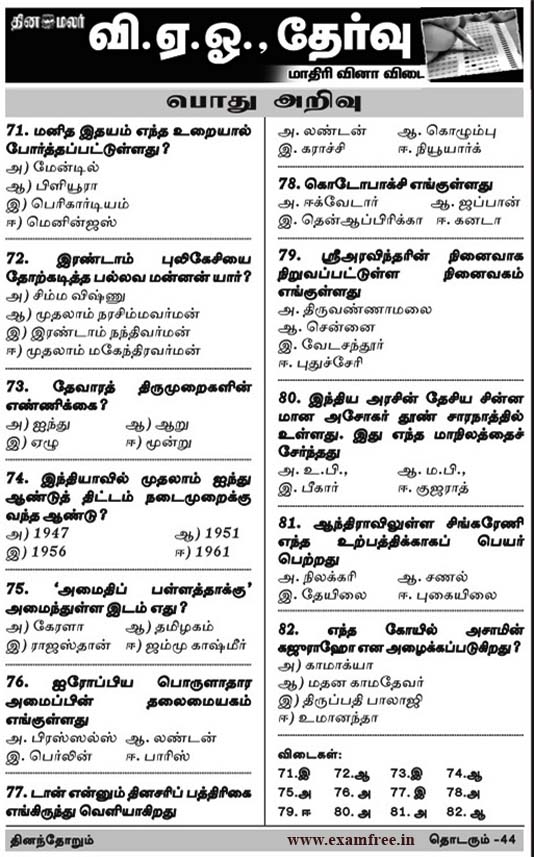 தின மலர்
வி.ஏ.ஓ., தேர்வு
மாதிரி வினா விடை
பொது அறிவு
71. மனித இதயம் எந்த உறையால்
போர்த்தப்பட்டுள்ளது?
அ) மேன்டில்
ஆ) பிளியூரா
இ) பெரிகார்டியம்
ஈ) மெனின்ஜஸ்
72. இரண்டாம் புலிகேசியை
தோற்கடித்த பல்லவ மன்னன் யார்?
அ) சிம்ம விஷ்ணு
ஆ) முதலாம் நரசிம்மவர்மன்
இ) இரண்டாம் நந்திவர்மன்
ஈ) முதலாம் மகேந்திரவர்மன்
73. தேவாரத் திருமுறைகளின்
எண்ணிக்கை?
அ) ஐந்து ஆ) ஆறு
இ) ஏழு ஈ) மூன்று
74. இந்தியாவில் முதலாம் ஐந்து
ஆண்டுத் திட்டம் நடைமுறைக்கு
வந்த ஆண்டு?
அ) 1947 ஆ) 1951
இ) 1956 ஈ) 1961
75. 'அமைதிப் பள்ளத்தாக்கு'
அமைந்துள்ள இடம் எது?
அ) கேரளா ஆ) தமிழகம்
இ) ராஜஸ்தான் ஈ) ஜம்மு காஷ்மீர்
76. ஐரோப்பிய பொருளாதார
அமைப்பின் தலைமையகம்
எங்குள்ளது
அ. பிரஸ்ஸல்ஸ் ஆ. லண்டன்
இ. பெர்லின் ஈ. பாரிஸ்
77. டான் என்னும் தினசரிப் பத்திரிகை
எங்கிருந்து வெளியாகிறது
அ. லண்டன் ஆ. கொழும்பு
இ. கராச்சி ஈ. நியூயார்க்
78. கொடோபாக்சி எங்குள்ளது
அ. ஈக்வேடார் ஆ. ஜப்பான்
இ. தென்ஆப்பிரிக்கா ஈ. கனடா
79. ஸ்ரீஅரவிந்தரின் நினைவாக
நிறுவப்பட்டுள்ள நினைவகம்
எங்குள்ளது
அ. திருவண்ணாமலை
ஆ. சென்னை
இ. வேடசந்தூர்
ஈ. புதுச்சேரி
80. இந்திய அரசின் தேசிய சின்ன
மான அசோகர் தூண் சாரநாத்தில்
உள்ளது. இது எந்த மாநிலத்தைச்
சேர்ந்தது
அ. உ.பி., ஆ. ம.பி.,
இ. பீகார் ஈ. குஜராத்
81. ஆந்திராவிலுள்ள சிங்கரேணி
எந்த உற்பத்திக்காகப் பெயர்
பெற்றது
அ. நிலக்கரி ஆ. சணல்
இ. தேயிலை ஈ. புகையிலை
82. எந்த கோயில் அசாமின்
கஜுராஹோ என அழைக்கப்படுகிறது?
அ) காமாக்யா
ஆ) மதன காமதேவர்
இ) திருப்பதி பாலாஜி
ஈ) உமானந்தா
விடைகள்:
71.இ 72.ஆ 73.இ 74.ஆ
75.அ 76.அ 77.இ 78.அ
79.ஈ 80.அ 81.அ 82.ஆ
தினந்தோறும் www.examfree.in தொடரும் -44